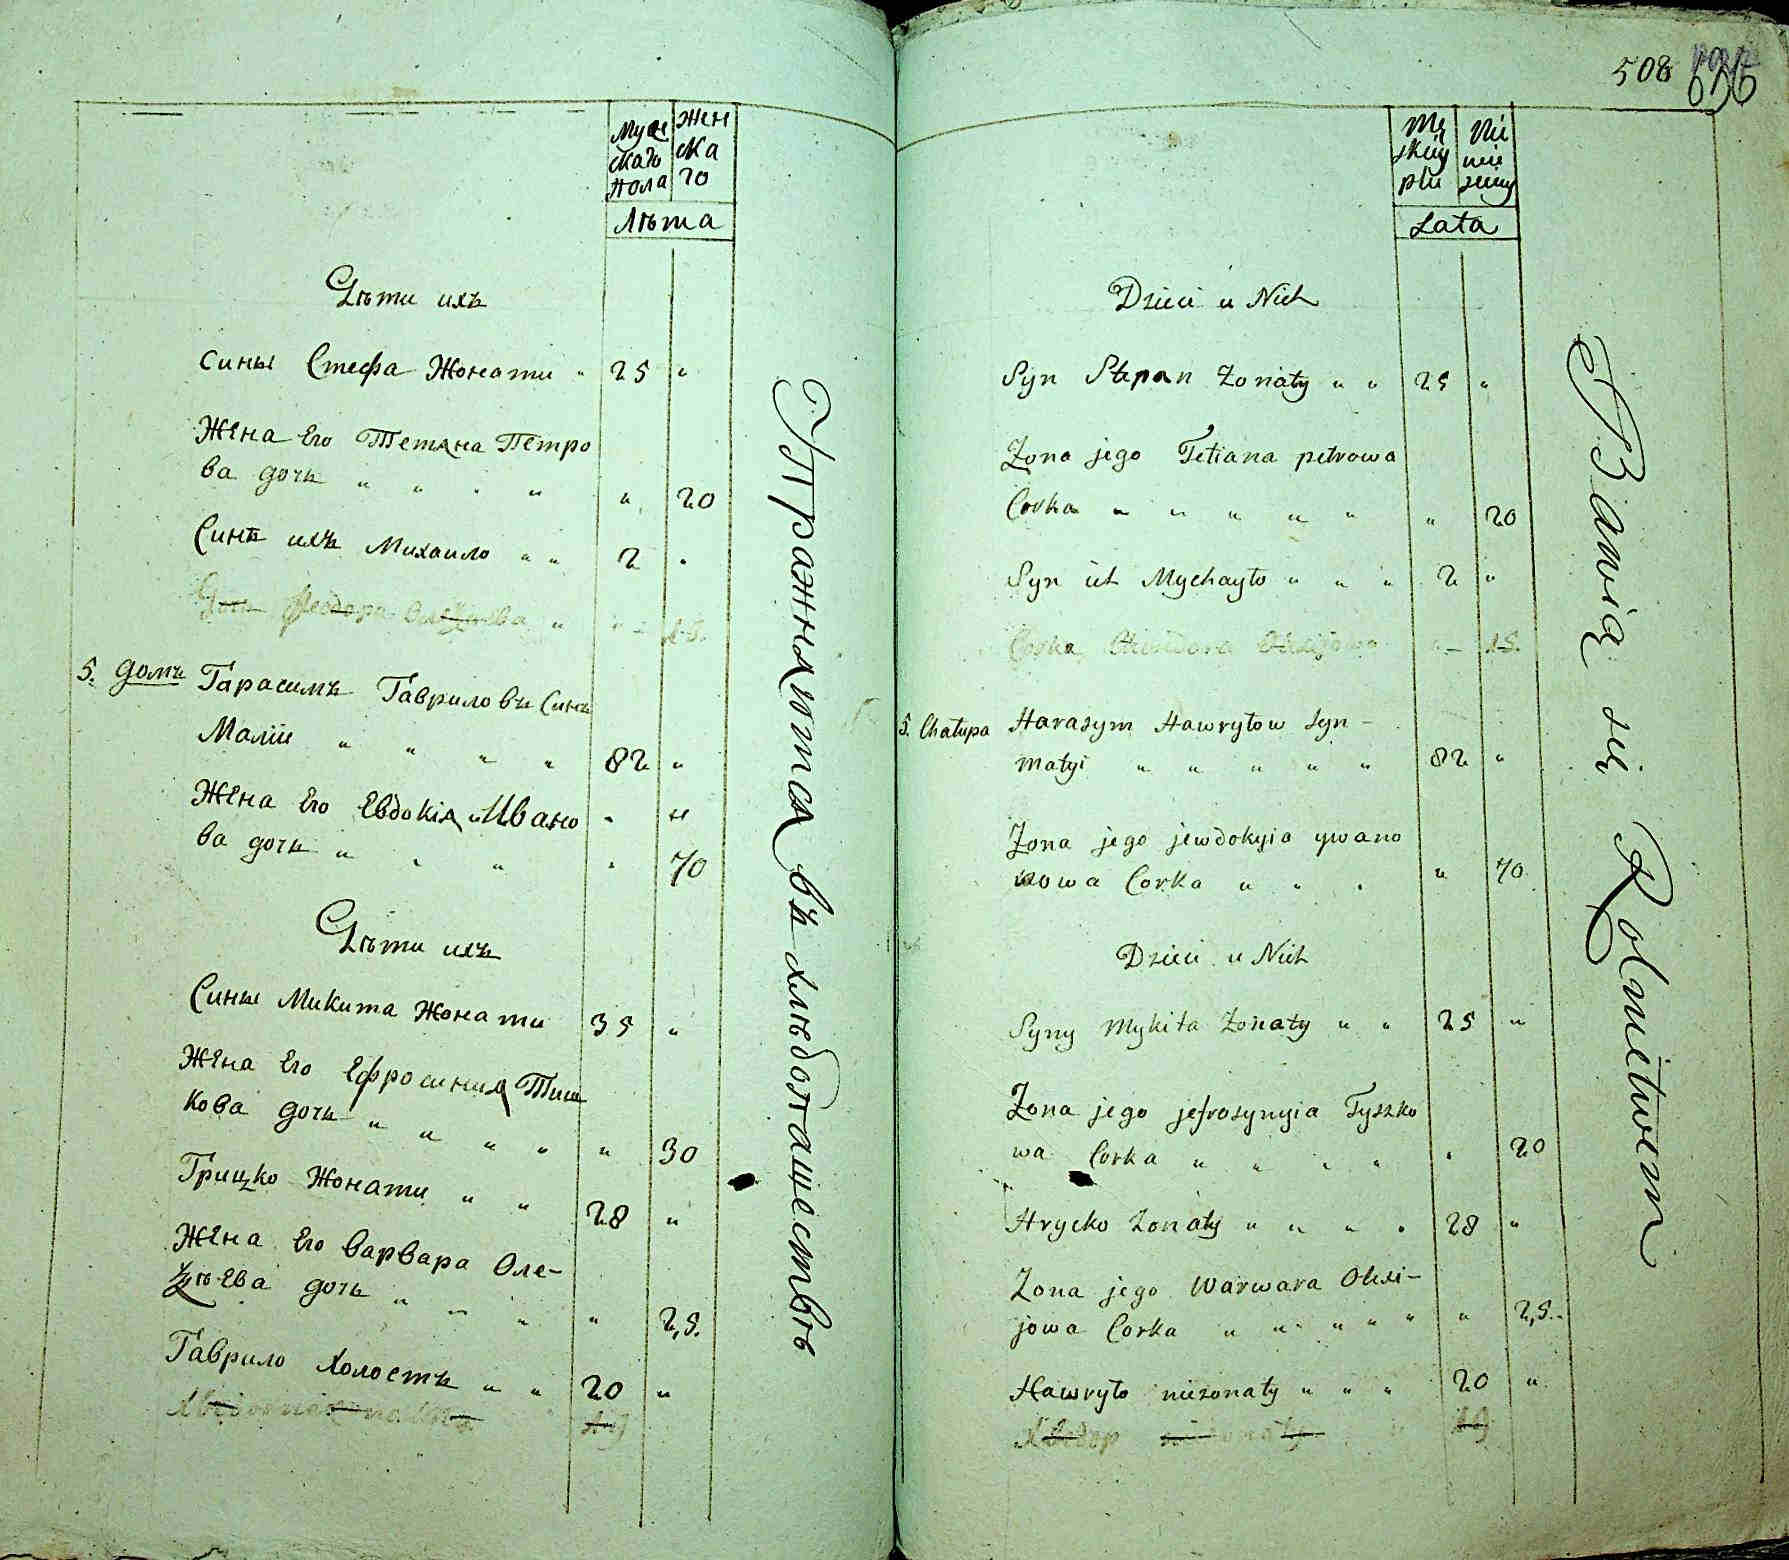 Муж Жен
скаго ска
пола го
Лѣта
Дѣти ихъ
Сины Стефа Жонати " 25 "
Жена Его Тетяна Петро
ва дочь " " " " " 20
Синъ ихъ Михаило " " 2 "
Дочь Феодора Олексѣева " " 15.
5. домъ Гарасимъ Гавриловъ Синъ
Малій " " " " 82 "
Жена Его Евдокія Ивано " "
ва дочь " " " " 70
Дѣти ихъ
Сины Микита Жонати 35 "
Жена Его Ефросиния Тиш
кова дочь " " " " " 30
Грицко Жонати " " 28 "
Жена Его Варвара Оле-
ѯѣева дочь " " " " 25.
Гаврило Холостъ " " 20 "
19
Упражняются въ хлѣбопашествѣ
508
636
Mę Nie
skiey wie
płci
Lata
Dzieci u Nich
Syn Stepan Zonaty " " 25 "
Zona jego Tetiana petrowa
Corka " " " " " " 20
Syn ich Mychayło " " " 2 "
Corka Olexijowa " 15.
5. Chałupa Harasym Hawryłow Syn -
małyi " " " " " 82 "
Zona jego jewdokyia ywano
nowa Corka " " " " 70
Dzieci u Nich
Syny Mykita Zonaty " " 25 "
Zona jego jefrosynyia Tyszko
wa Corka " " " " " 20
Hrycko Zonaty " " " " 28 "
Zona jego Warwara Olexi-
jowa Corka " " " " " " 25.
Hawryło niezonaty " " " 20 "
niezonaty 19
Bawią się Rolnictwem